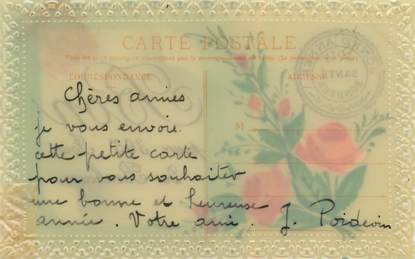 CARTE POSTALE
CORRESPONDANCE
ADRESSE
M
Chères amies
je vous envoie
cette petite carte
pour vous souhaiter
une bonne et heureuse
année. Votre ami. J. Poidevin